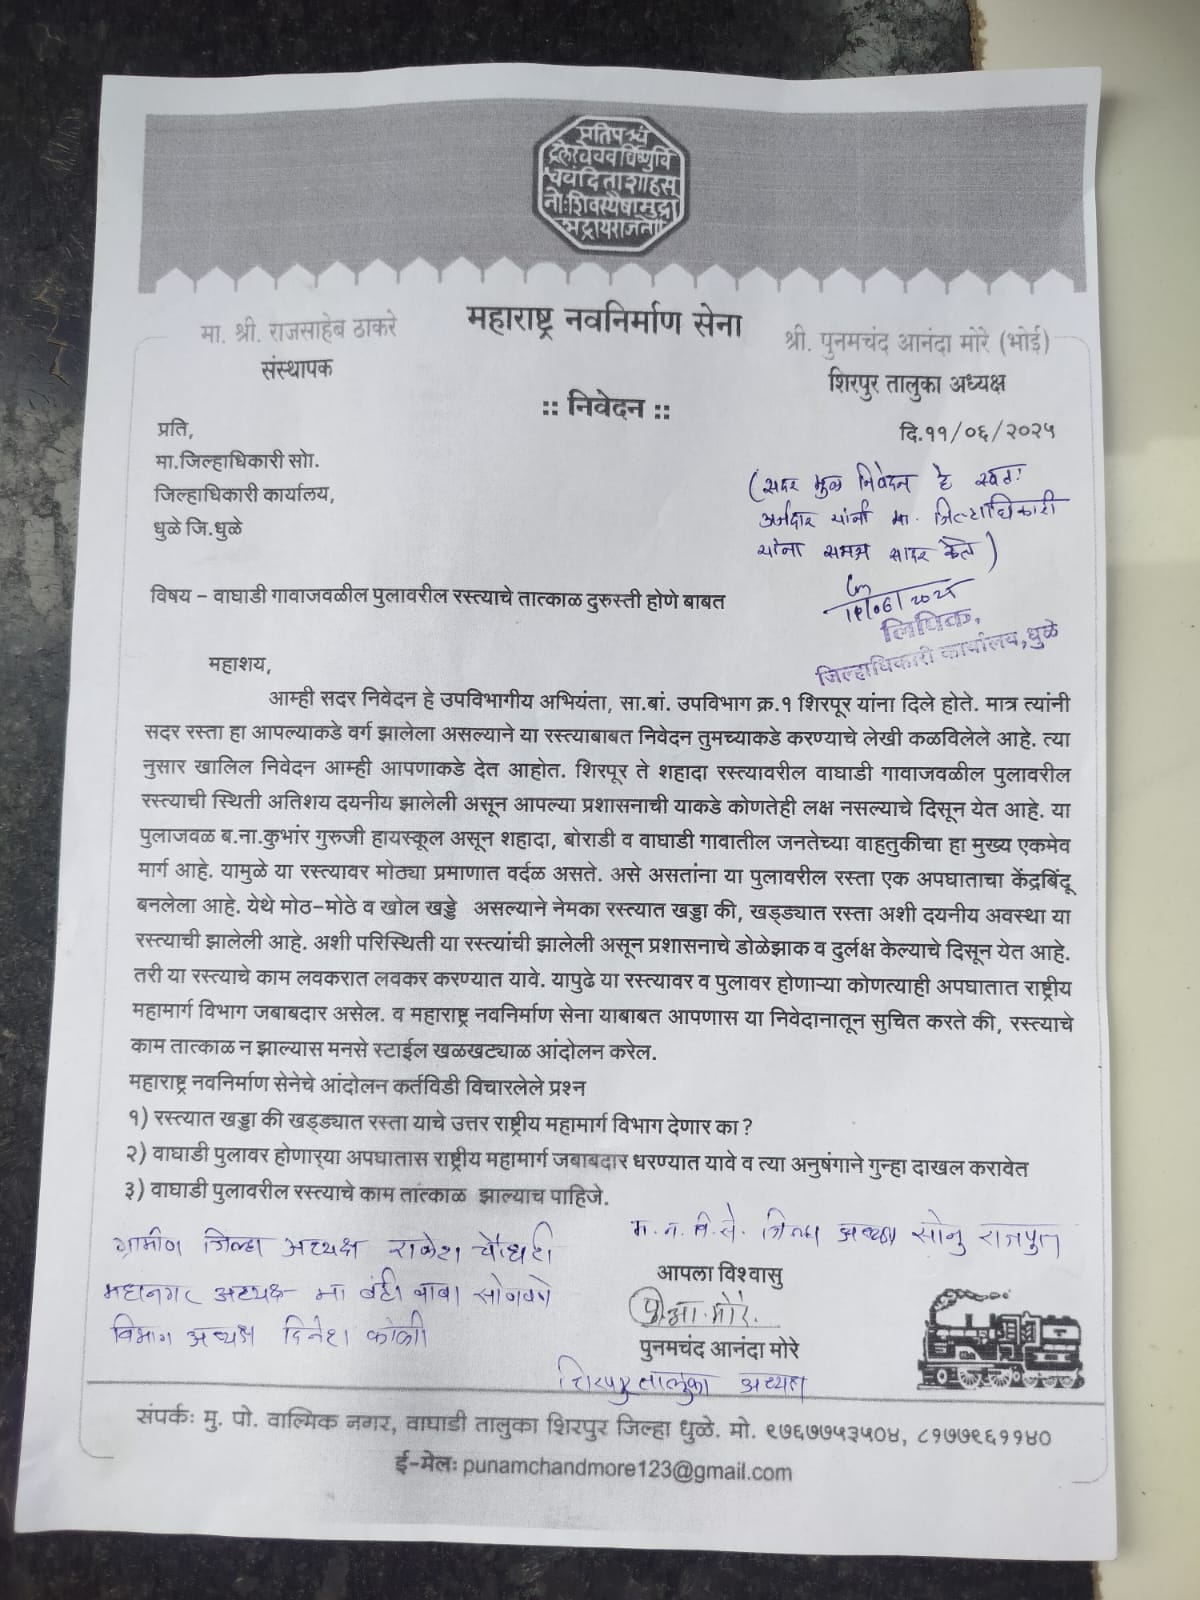 प्रतिपच्चं
द्रलेखेवव र्धिष्णुर्वि
श्ववंदिता शाहसू
नोः शिवस्यैषा मुद्रा
भद्राय राजते
महाराष्ट्र नवनिर्माण सेना
मा. श्री. राजसाहेब ठाकरे
संस्थापक
श्री. पुनमचंद आनंदा मोरे (भोई)
शिरपुर तालुका अध्यक्ष
:: निवेदन ::
दि.११/०६/२०२५
प्रति,
मा.जिल्हाधिकारी सोा.
जिल्हाधिकारी कार्यालय,
धुळे जि.धुळे
(सदर मुळ निवेदन हे स्वतः
अर्जदार यांनी मा. जिल्हाधिकारी
यांना समक्ष सादर केले)
लिपिक,
जिल्हाधिकारी कार्यालय,धुळे
विषय – वाघाडी गावाजवळील पुलावरील रस्त्याचे तात्काळ दुरुस्ती होणे बाबत
महाशय,
आम्ही सदर निवेदन हे उपविभागीय अभियंता, सा.बां. उपविभाग क्र.१ शिरपूर यांना दिले होते. मात्र त्यांनी
सदर रस्ता हा आपल्याकडे वर्ग झालेला असल्याने या रस्त्याबाबत निवेदन तुमच्याकडे करण्याचे लेखी कळविलेले आहे. त्या
नुसार खालिल निवेदन आम्ही आपणाकडे देत आहोत. शिरपूर ते शहादा रस्त्यावरील वाघाडी गावाजवळील पुलावरील
रस्त्याची स्थिती अतिशय दयनीय झालेली असून आपल्या प्रशासनाची याकडे कोणतेही लक्ष नसल्याचे दिसून येत आहे. या
पुलाजवळ ब.ना.कुभांर गुरुजी हायस्कूल असून शहादा, बोराडी व वाघाडी गावातील जनतेच्या वाहतुकीचा हा मुख्य एकमेव
मार्ग आहे. यामुळे या रस्त्यावर मोठ्या प्रमाणात वर्दळ असते. असे असतांना या पुलावरील रस्ता एक अपघाताचा केंद्रबिंदू
बनलेला आहे. येथे मोठ-मोठे व खोल खड्डे असल्याने नेमका रस्त्यात खड्डा की, खड्ड्यात रस्ता अशी दयनीय अवस्था या
रस्त्याची झालेली आहे. अशी परिस्थिती या रस्त्यांची झालेली असून प्रशासनाचे डोळेझाक व दुर्लक्ष केल्याचे दिसून येत आहे.
तरी या रस्त्याचे काम लवकरात लवकर करण्यात यावे. यापुढे या रस्त्यावर व पुलावर होणाऱ्या कोणत्याही अपघातात राष्ट्रीय
महामार्ग विभाग जबाबदार असेल. व महाराष्ट्र नवनिर्माण सेना याबाबत आपणास या निवेदानातून सुचित करते की, रस्त्याचे
काम तात्काळ न झाल्यास मनसे स्टाईल खळखट्याळ आंदोलन करेल.
महाराष्ट्र नवनिर्माण सेनेचे आंदोलन कर्तविडी विचारलेले प्रश्न
१) रस्त्यात खड्डा की खड्ड्यात रस्ता याचे उत्तर राष्ट्रीय महामार्ग विभाग देणार का?
२) वाघाडी पुलावर होणाऱ्या अपघातास राष्ट्रीय महामार्ग जबाबदार धरण्यात यावे व त्या अनुषंगाने गुन्हा दाखल करावेत
३) वाघाडी पुलावरील रस्त्याचे काम तात्काळ झाल्याच पाहिजे.
म.न.वि.से. जिल्हा अध्यक्ष सोनु राजपुत
ग्रामीण जिल्हा अध्यक्ष राकेश चौधरी
महानगर अध्यक्ष मा बंटी बाबा सोनवणे
विभाग अध्यक्ष दिनेश कोळी
आपला विश्वासु
पु.आ.मोरे.
पुनमचंद आनंदा मोरे
शिरपुर तालुका अध्यक्ष
संपर्कः मु. पो. वाल्मिक नगर, वाघाडी तालुका शिरपुर जिल्हा धुळे. मो. ९७६७७५३५०४, ८१७७९६११४०
ई-मेलः punamchandmore123@gmail.com